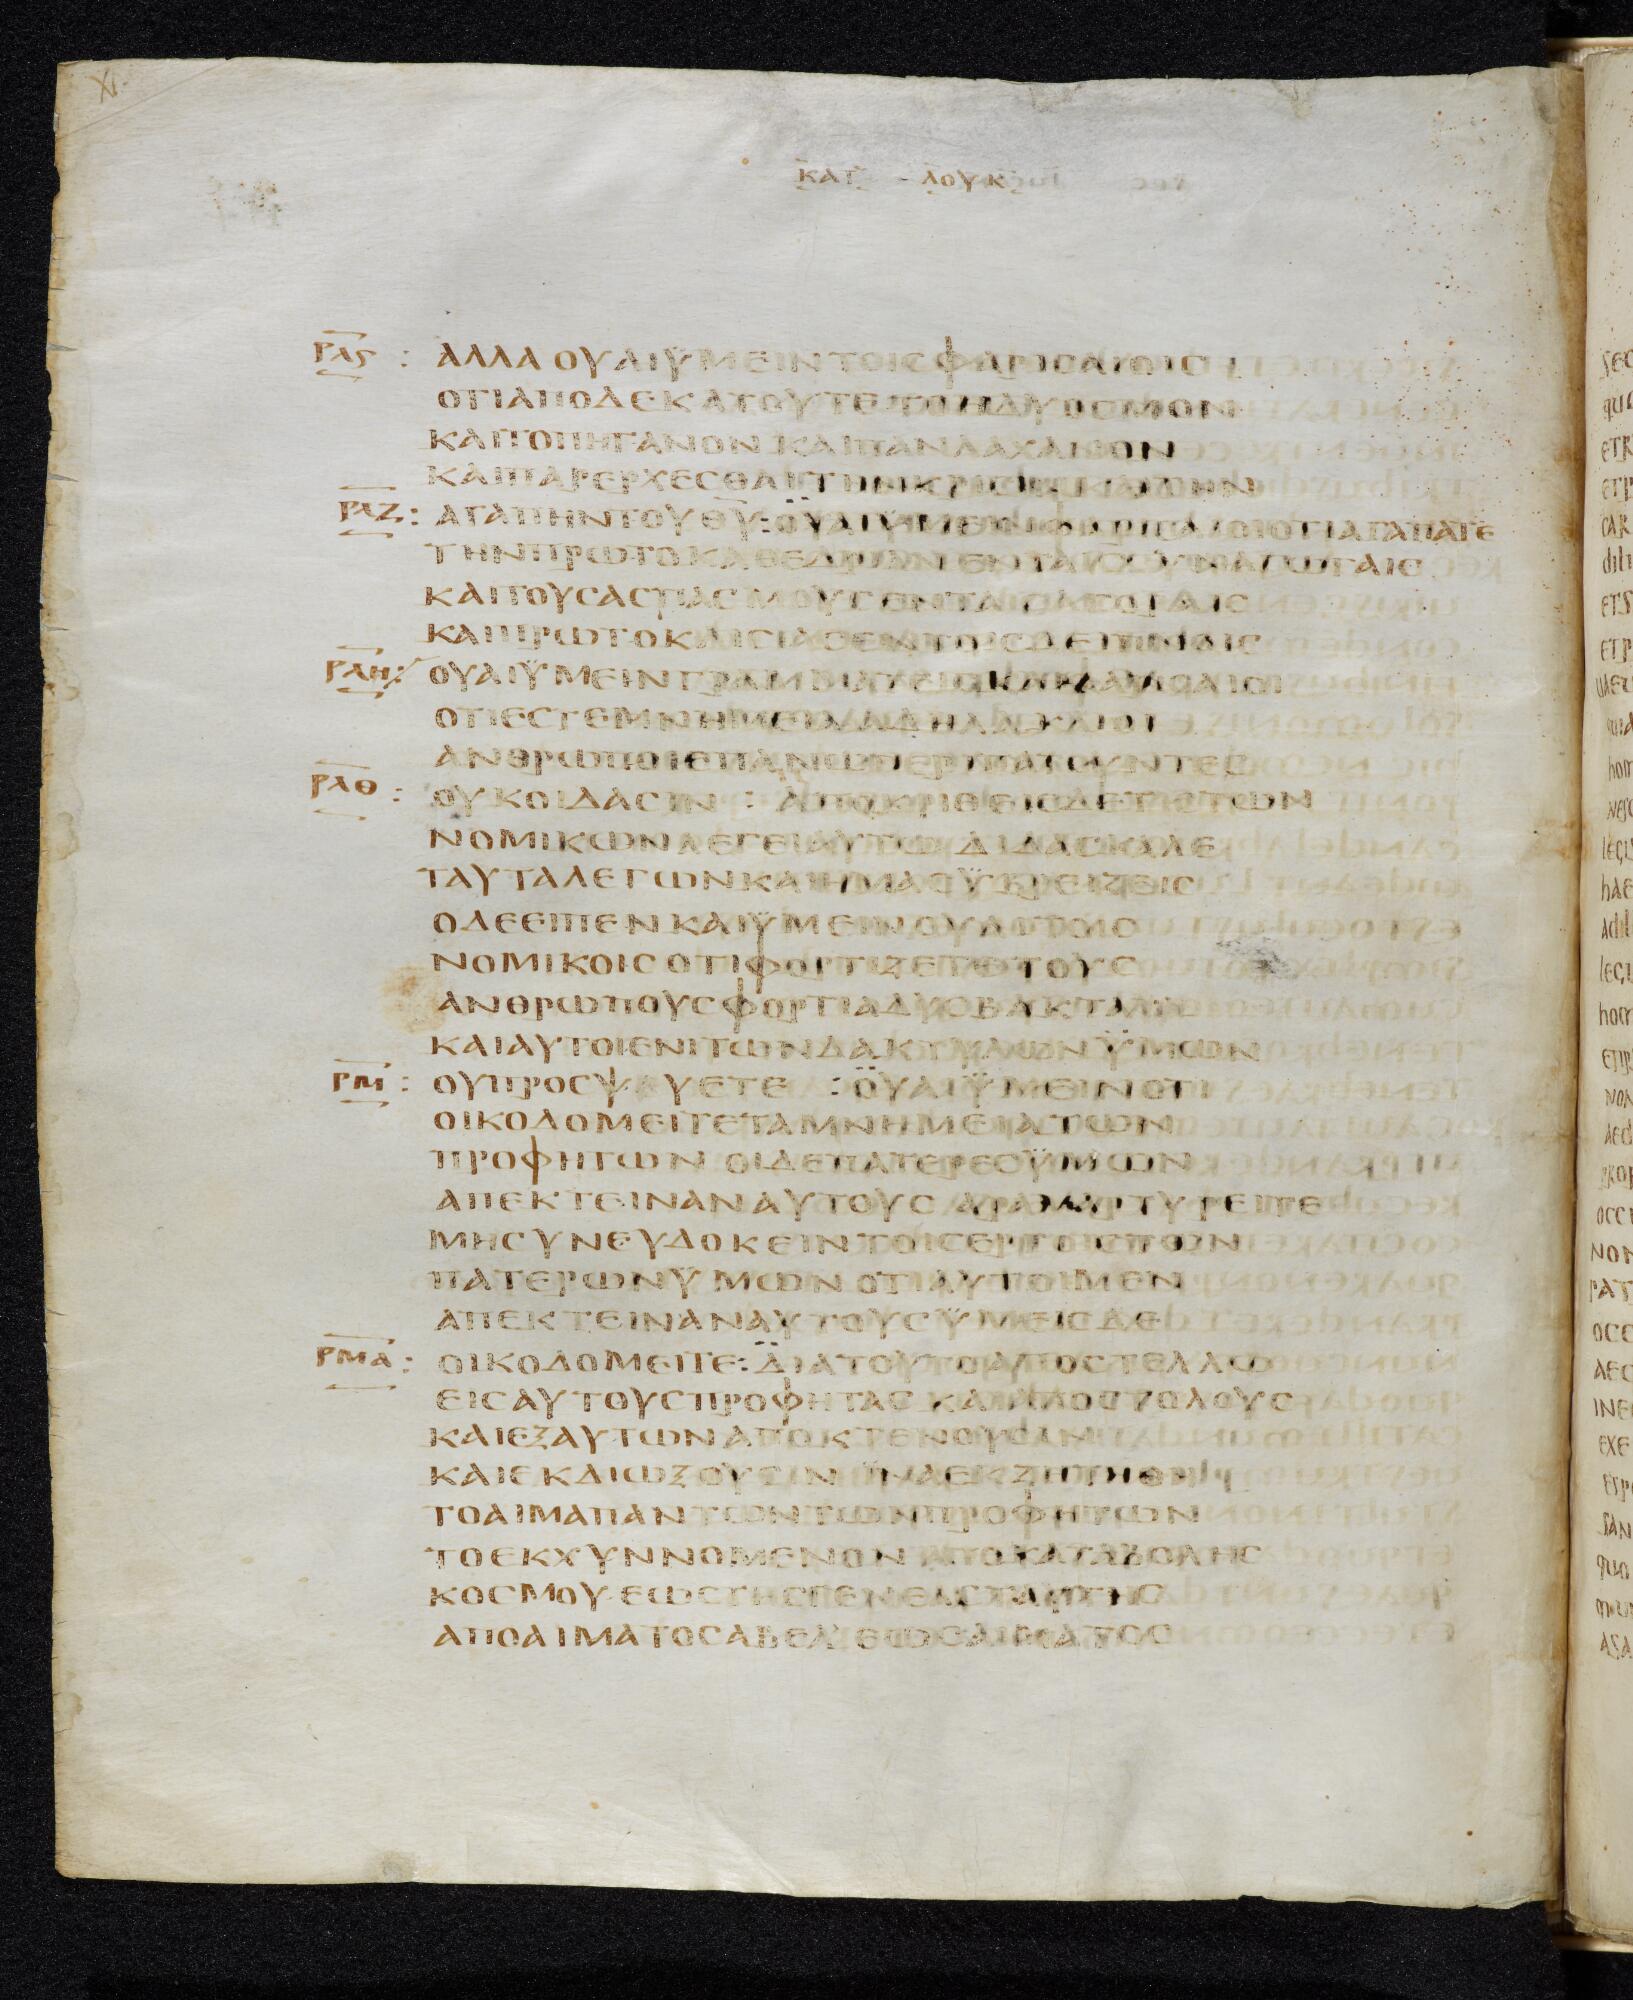 ΚΑΤ ΛΟΥΚ
ΡΛϚ : ΑΛΛΑ ΟΥΑΙΫΜΕΙΝΤΟΙϹΦΑΡΙϹΑΙΟΙϹ
ΟΤΙΑΠΟΔΕΚΑΤΟΥΤΕΤΟΗΔΥΟϹΜΟΝ
ΚΑΙΤΟΠΗΓΑΝΟΝΚΑΙΠΑΝΛΑΧΑΝΟΝ
ΚΑΙΠΑΡΕΡΧΕϹΘΑΙΤΗΝΚΡΙϹΙΝΚΑΙΤΗΝ
ΡΛΖ : ΑΓΑΠΗΝΤΟΥΘΥ : ΟΥΑΙΫΜΕΙΝΦΑΡΙϹΑΙΟΙΟΤΙΑΓΑΠΑΤΕ
ΤΗΝΠΡΩΤΟΚΑΘΕΔΡΙΑΝΕΝΤΑΙϹϹΥΝΑΓΩΓΑΙϹ
ΚΑΙΤΟΥϹΑϹΠΑϹΜΟΥϹΕΝΤΑΙϹΑΓΟΡΑΙϹ
ΚΑΙΠΡΩΤΟΚΛΙϹΙΑϹΕΝΤΟΙϹΔΕΙΠΝΟΙϹ
ΡΛΗ : ΟΥΑΙΫΜΕΙΝΓΡΑΜΜΑΤΕΙϹΚΑΙΦΑΡΙϹΑΙΟΙ
ΟΤΙΕϹΤΕΜΝΗΜΕΙΑΑΔΗΛΑΚΑΙΟΙ
ΑΝΘΡΩΠΟΙΕΠΑΝΩΠΕΡΙΠΑΤΟΥΝΤΕϹ
ΡΛΘ : ΟΥΚΟΙΔΑϹΙΝ : ΑΠΟΚΡΙΘΕΙϹΔΕΤΙϹΤΩΝ
ΝΟΜΙΚΩΝΛΕΓΕΙΑΥΤΩ ΔΙΔΑϹΚΑΛΕ
ΤΑΥΤΑΛΕΓΩΝΚΑΙΗΜΑϹΫΒΡΕΙΖΕΙϹ
ΟΔΕΕΙΠΕΝΚΑΙΫΜΕΙΝΟΥΑΙΤΟΙϹ
ΝΟΜΙΚΟΙϹΟΤΙΦΟΡΤΙΖΕΤΕΤΟΥϹ
ΑΝΘΡΩΠΟΥϹΦΟΡΤΙΑΔΥϹΒΑΚΤΑ
ΚΑΙΑΥΤΟΙΕΝΙΤΩΝΔΑΚΤΥΛΩΝΫΜΩΝ
ΡΜ : ΟΥΠΡΟϹΨΑΥΕΤΕ : ΟΥΑΙΫΜΕΙΝΟΤΙ
ΟΙΚΟΔΟΜΕΙΤΕΤΑΜΝΗΜΕΙΑΤΩΝ
ΠΡΟΦΗΤΩΝ ΟΙΔΕΠΑΤΕΡΕϹΫΜΩΝ
ΑΠΕΚΤΕΙΝΑΝΑΥΤΟΥϹ ΑΡΑΜΑΡΤΥΡΕΙΤΕ
ΜΗϹΥΝΕΥΔΟΚΕΙΝΤΟΙϹΕΡΓΟΙϹΤΩΝ
ΠΑΤΕΡΩΝΫΜΩΝΟΤΙΑΥΤΟΙΜΕΝ
ΑΠΕΚΤΕΙΝΑΝΑΥΤΟΥϹΫΜΕΙϹΔΕ
ΡΜΑ : ΟΙΚΟΔΟΜΕΙΤΕ : ΔΙΑΤΟΥΤΟΑΠΟϹΤΕΛΛΩ
ΕΙϹΑΥΤΟΥϹΠΡΟΦΗΤΑϹ ΚΑΙΑΠΟϹΤΟΛΟΥϹ
ΚΑΙΕΞΑΥΤΩΝΑΠΟΚΤΕΝΟΥϹΙΝ
ΚΑΙΕΚΔΙΩΞΟΥϹΙΝ ΪΝΑΕΚΖΗΤΗΘΗ
ΤΟΑΙΜΑΠΑΝΤΩΝΤΩΝΠΡΟΦΗΤΩΝ
ΤΟΕΚΧΥΝΝΟΜΕΝΟΝ ΑΠΟΚΑΤΑΒΟΛΗϹ
ΚΟϹΜΟΥ ΕΩϹΤΗϹΓΕΝΕΑϹΤΑΥΤΗϹ
ΑΠΟΑΙΜΑΤΟϹΑΒΕΛ ΕΩϹΑΙΜΑΤΟϹ